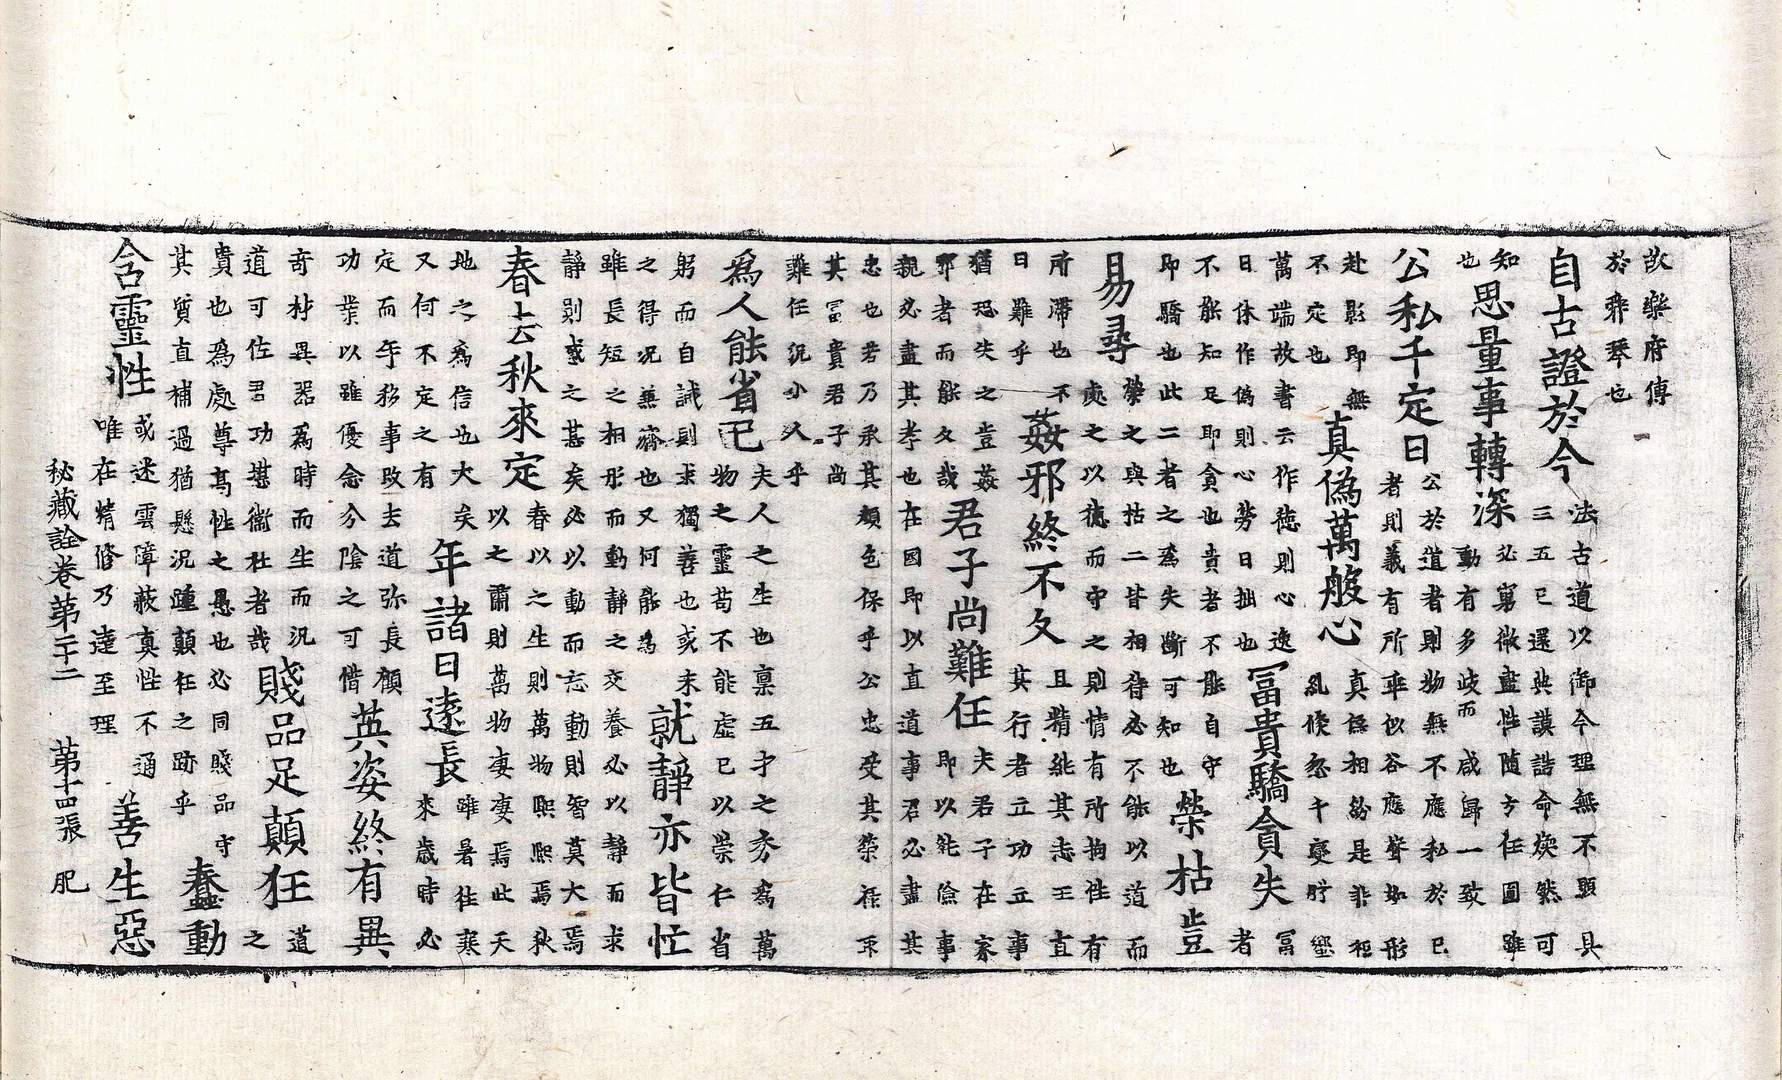 故樂府傳
於飛琴也
自古證於今
法古道以御今理無不顯具
三五已還典謨誥命煥然可
知
也
思量事轉深
必窮微盡性隨方任圓雖
動有多歧而咸歸一致
公私千定日
公於道者則物無不應私於已
者則義有所乖似谷應聲如形
赴影即無
不定也
真偽萬般心
真偽相紛是非相
乱倏忽千變肸蠁
萬端故書云作德則心逸
日休作偽則心勞日拙也
冨貴驕貪失
冨
者
不能知足即貪也貴者不能自守
即驕也此二者之為失斷可知也
榮枯豈
易尋
榮之與枯二皆相待必不能以道而
處之以德而守之則情有所拘性有
所滯也不
曰難乎
姦邪終不久
且精純其志正直
其行者立功立事
猶恐失之豈姦
邪者而能久哉
君子尚難任
夫君子在家
即以純儉事
親必盡其孝也在國即以直道事君必盡其
忠也若乃承其顏色保乎公忠受其榮祿不
其冨貴君子尚
難任況小人乎
為人能省己
夫人之生也稟五才之秀為萬
物之靈苟不能虛已以榮仁省
躬而自誡則求獨善也或未
之得況兼濟也又何能為
就靜亦皆忙
雖長短之相形而動靜之交養必以靜而求
靜則惑之甚矣必以動而忘動則智莫大焉
春去秋來定
春以之生則萬物熙熙焉秋
以之肅則萬物凄凄焉此天
地之為信也大矣
又何不定之有
年諸日遠長
雖暑往寒
來歲時必
定而年移事改去道弥長顧
功業以雖優念分陰之可惜
英姿終有異
奇材異器為時而生而況
道可佐君功堪衛社者哉
賤品足顛狂
道
之
貴也為處尊高性之愚也必同賤品守
其質直補過猶懸況踵顛狂之跡乎
蠢動
含靈性
或迷雲障蔽真性不通
唯在精修乃達至理
善生惡
秘藏詮卷第二十二 第十四張 肥